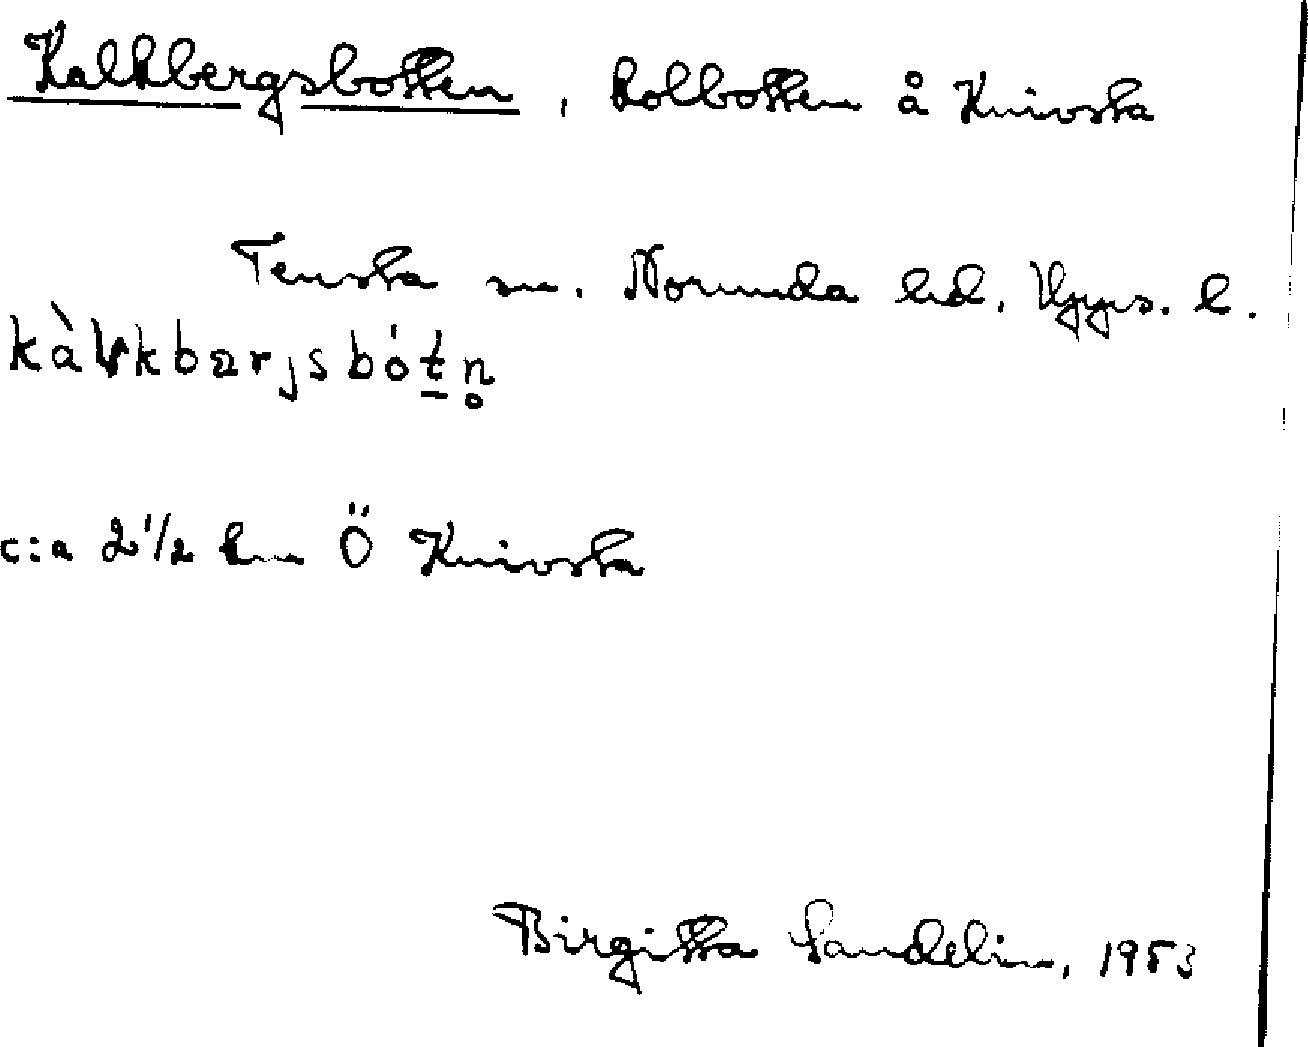 Kalkbergsbotten, kolbotten å Knivsta
Tensta sn. Norunda hd. Upps. l.
kàlkbærjsbótn̥
c:a 2 1/2 km Ö Knivsta
Birgitta Sandelin, 1953